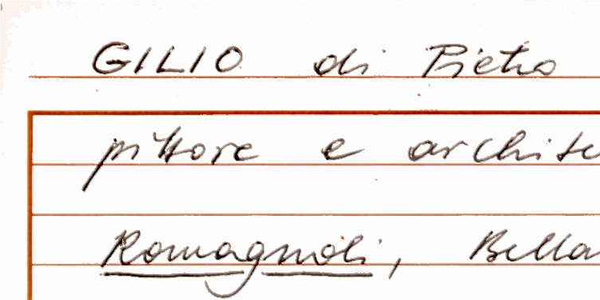 GILIO di Pietro
pittore e archite
Romagnoli, Bella